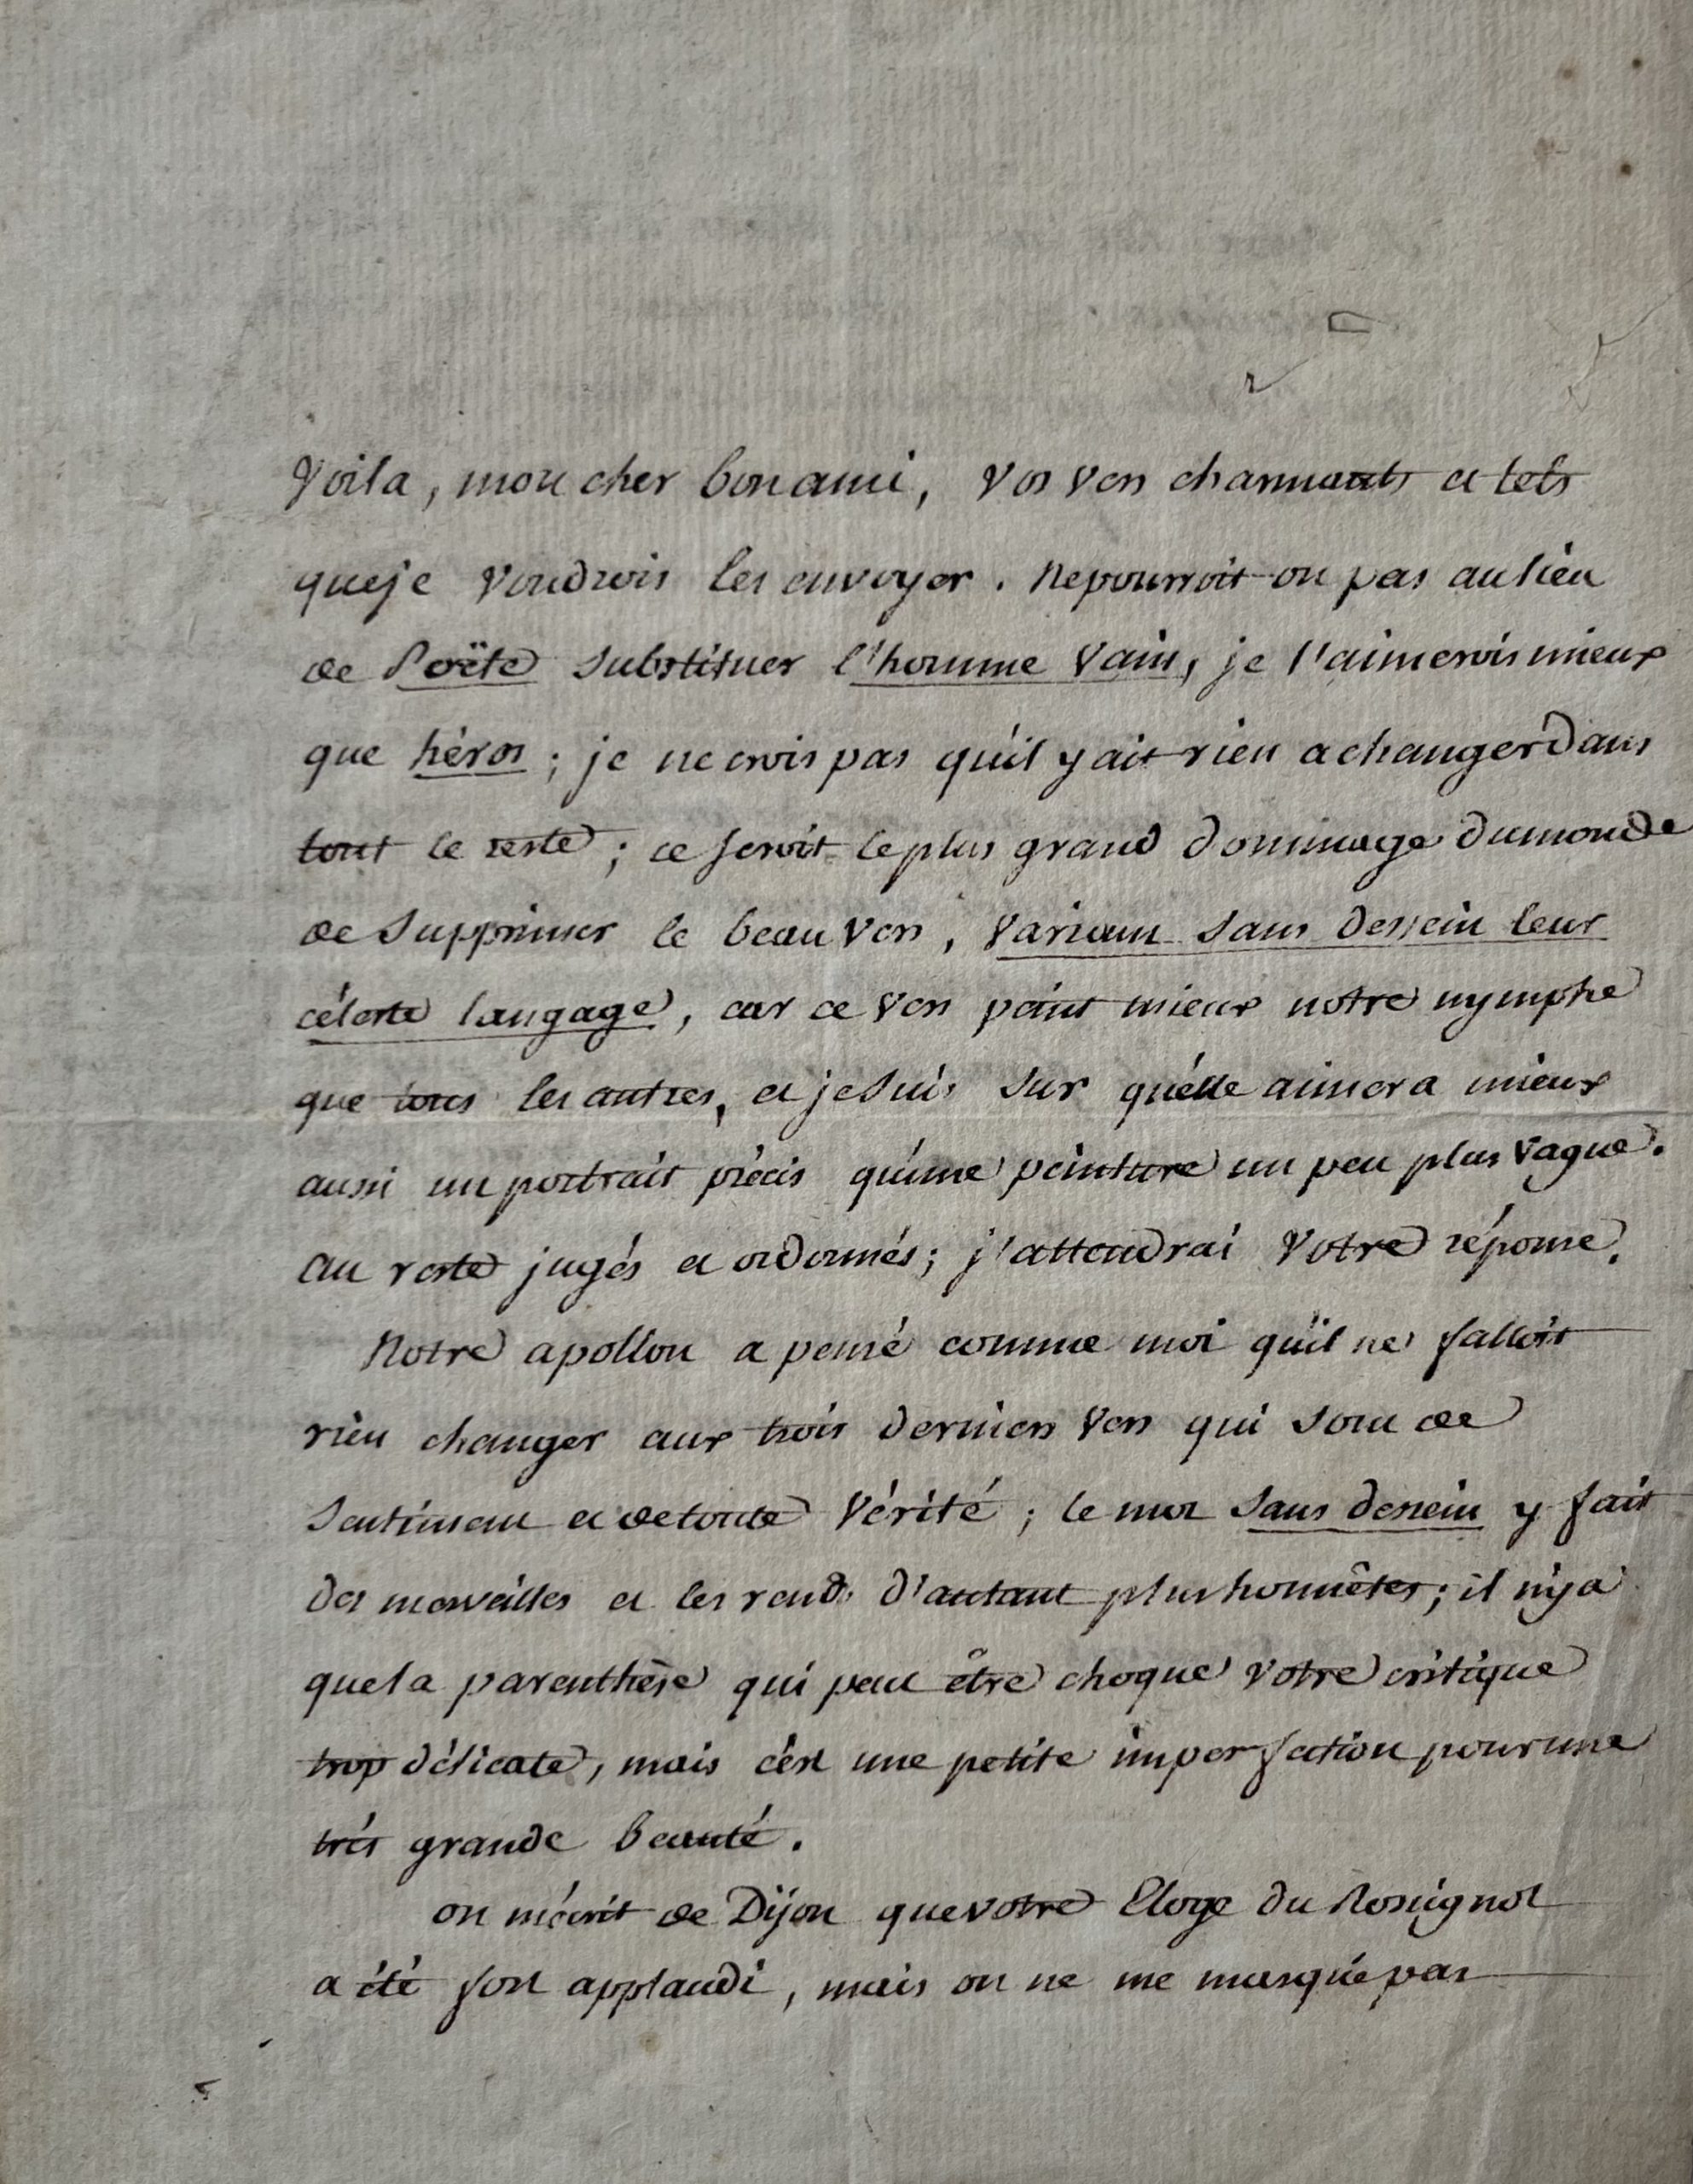 Voila, mon cher bon ami, vos vers charmants et tels
que je voudrois les envoyer. Ne pourroit-on pas au lieu
de Poëte substituer l'homme vain, je l'aimerois mieux
que héros ; je ne crois pas qu'il y ait rien a changer dans
tout le reste ; ce seroit le plus grand dommage du monde
de supprimer le beau vers, variant sans dessein leur
céleste langage, car ce vers peint mieux notre nymphe
que tous les autres, et je suis sur qu'elle aimera mieux
aussi un portrait précis qu'une peinture un peu plus vague.
au reste jugés et ordonnés ; j'attendrai votre réponse.
Notre apollon a pensé comme moi qu'il ne falloit
rien changer aux trois derniers vers qui sont de
sentiment et de toute vérité ; le mot sans dessein y fait
des merveilles et les rend d'autant plus honnêtes ; il n'y a
que la parenthèse qui peut être choque votre critique
trop délicate, mais c'est une petite imperfection pour une
très grande beauté.
on m'écrit de Dijon que votre Eloge du Rossignol
a été fort applaudi, mais on ne me marque pas